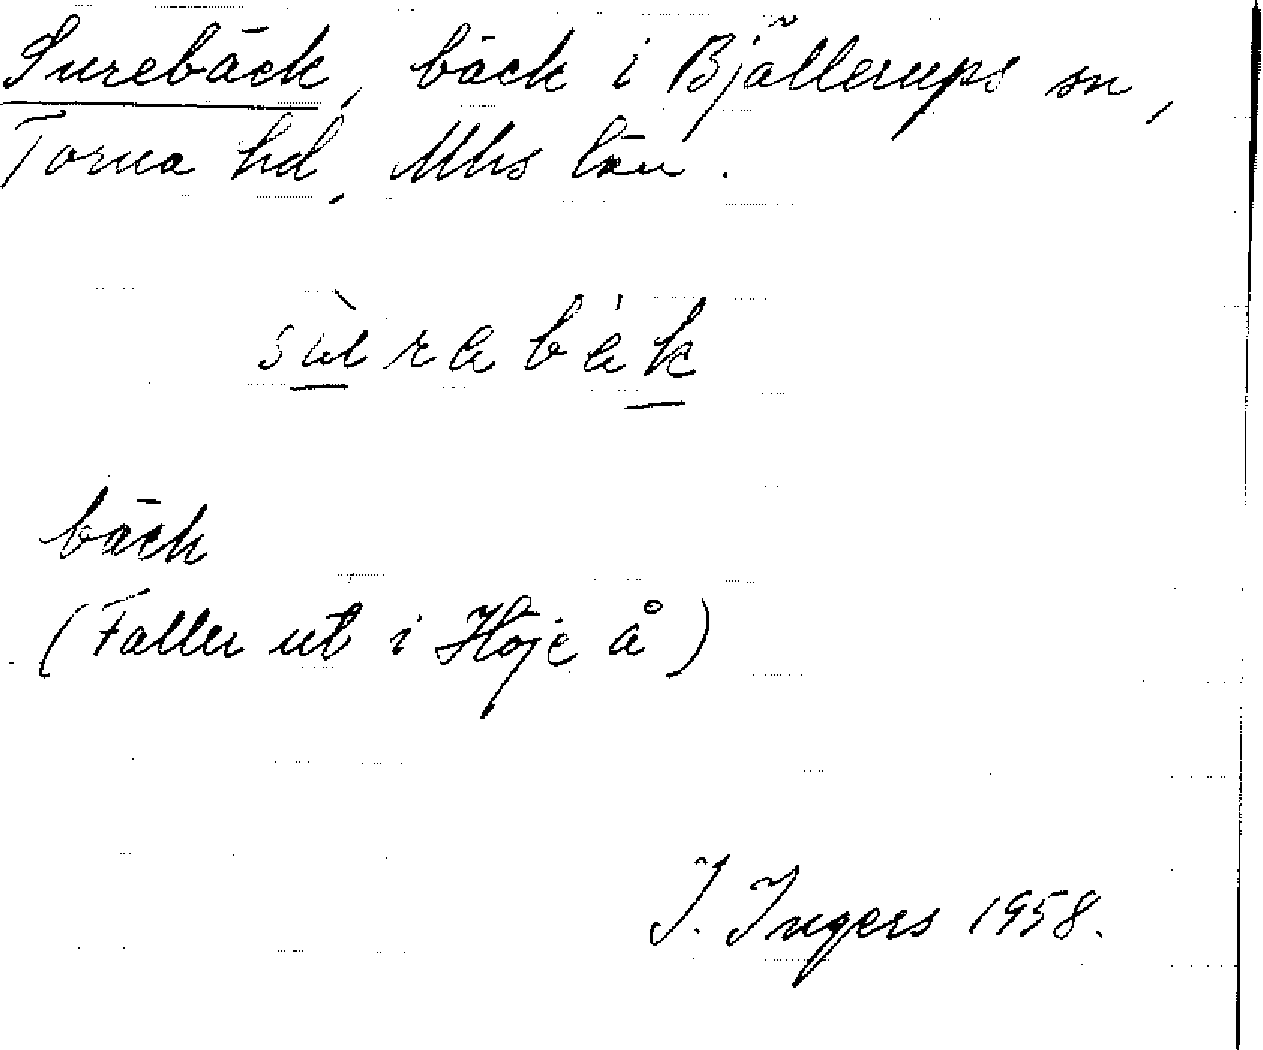 Surebäck, bäck i Bjällerups sn,
Torna hd, Mhs län.
sùrabák
bäck
(Faller ut i Höje å)
I. Ingers 1958.